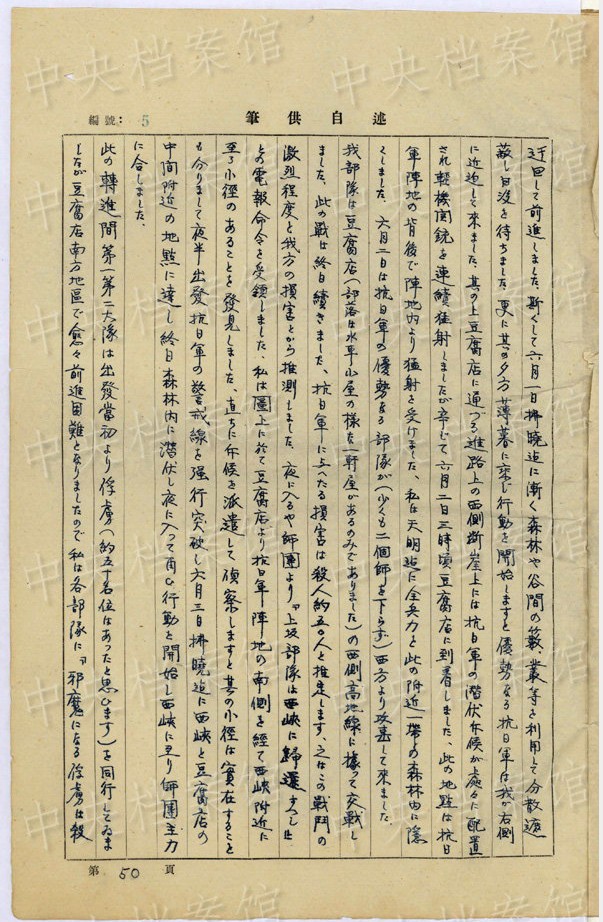 編號: 5
筆供自述
迂回して前進しました、斯くして六月一日拂曉迄に漸く森林や谷間の籔、叢等を利用して分散遮
蔽し日没を待ちました、更に其の夕方薄暮に乘じ行動を開始しますと優勢なる抗日軍は我が右側
に近迫して來ました、其の上豆腐店に通づる進路上の西側断崖上には抗日軍の潜伏斥候が處々に配置
され輕機関銃を連續猛射しましたが辛じて六月二日三時頃豆腐店に到着しました、此の地點は抗日
軍陣地の背後で陣地内より猛射を受けました、私は天明迄に全兵力を此の附近一帶の森林内に隠
しました、六月二日は抗日軍の優勢なる部隊が(少くも二個師を下らず)西方より攻撃して來ました
我部隊は豆腐店(部落は水車小屋の樣な一軒屋があるのみでありました)の西側高地線に據って交戰し
ました、此の戰は終日續きました、抗日軍に与へたる損害は殺人約五〇人と推定します、之はこの戰鬥の
激烈程度と我方の損害とから推測しました、夜に入るや師團より『上坂部隊は西峽に歸還すべし』
との電報命令を受領しました、私は圖上に於て豆腐店より抗日軍陣地の南側を經て西峽附近に
至る小徑のあることを發見しました、直ちに斥候を派遣して偵察しますと其の小徑は實在すること
も分りまして夜半出發抗日軍の警戒線を强行突破し六月三日拂曉迄に西峽と豆腐店の
中間附近の地點に達し終日森林内に潜伏し夜に入って再び行動を開始し西峽に至り師團主力
に合しました、
此の轉進間第一第二大隊は出發當初より俘虜(約五十名位はあったと思ひます)を同行してゐま
したが豆腐店南方地區で愈々前進困難となりましたので私は各部隊に『邪魔になる俘虜は殺
第 50 頁
中央档案馆